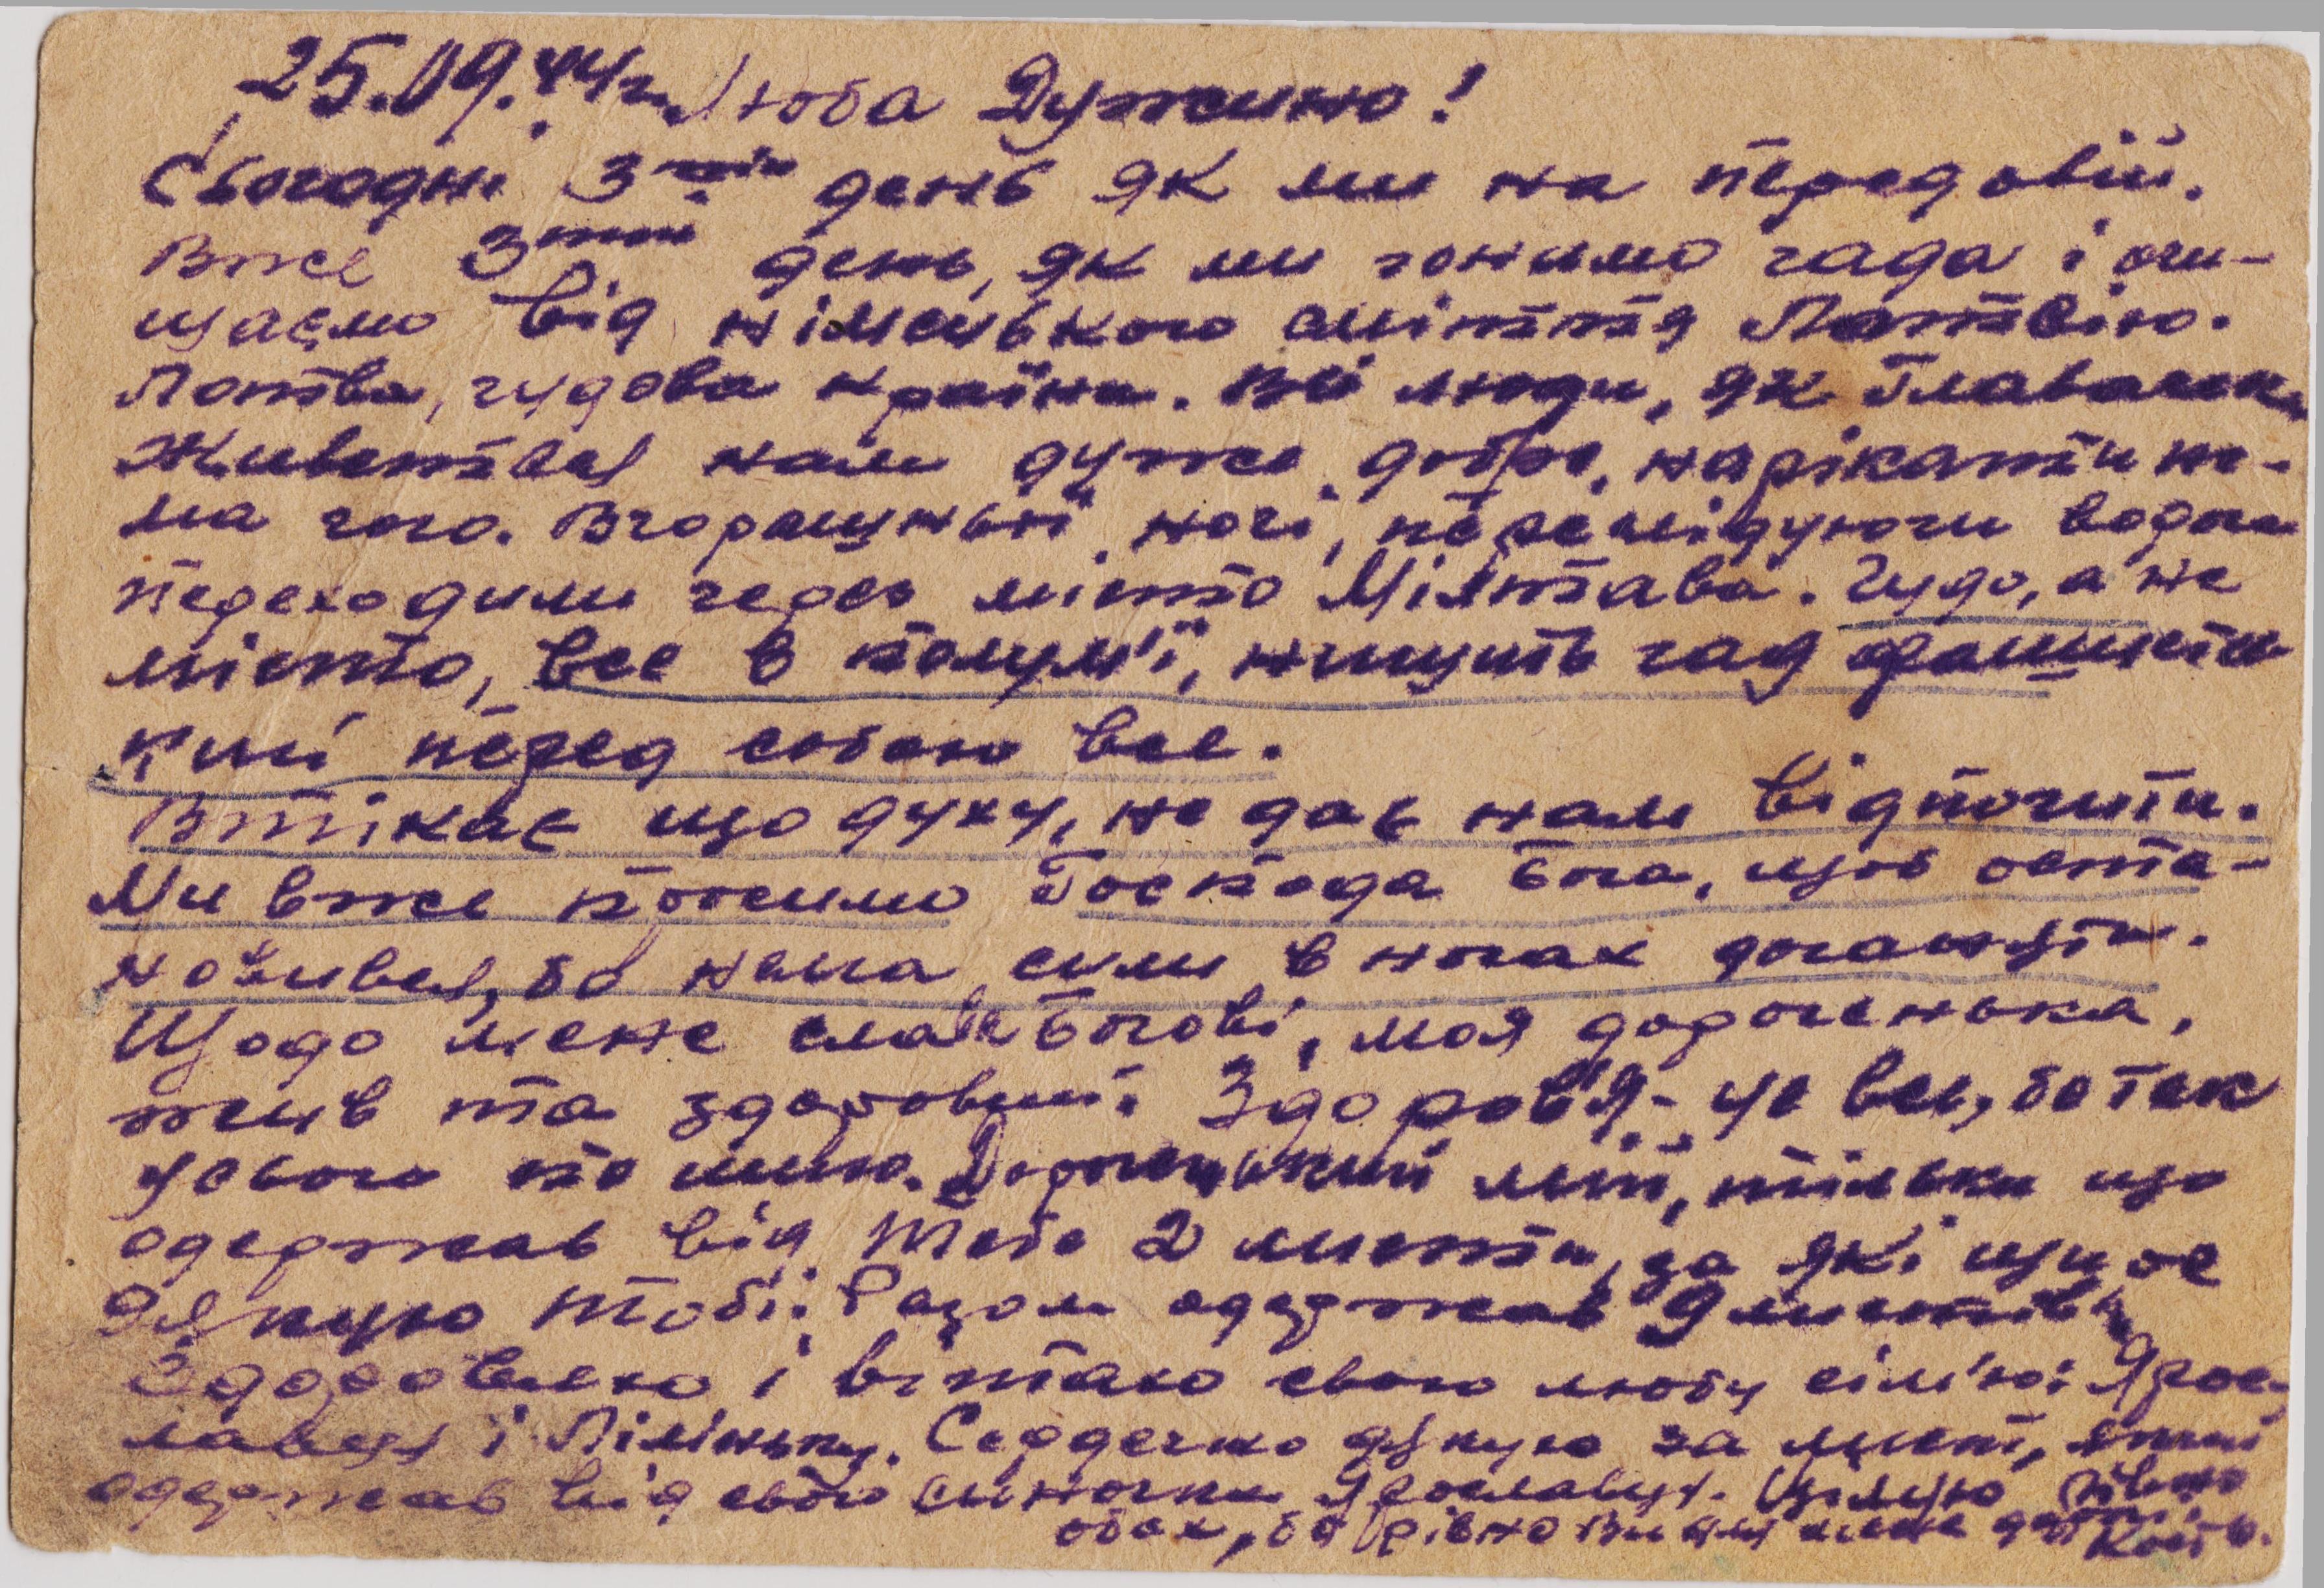 25.09.44г. Люба Дружино!
Сьогодні 3-тій день як ми на передовій.
Вже 3-тий день, як ми гонимо гада і очи-
щаємо від німецького сміття Латвію.
Латва, чудова країна. Всі люди, як
Живеться нам дуже добре, нарікати не-
ма чого. Вчорашньої ночі, переслідуючи ворога
переходили через місто Мітава. Чудо, а не
місто, все в полум'ї, нищить гад фашистів-
кий перед собою все.
Втікає що духу, не дає нам відпочити.
Ми вже просимо Господа Бога, щоб оста-
новився, бо нема сили в ногах доганяти.
Щодо мене слава Богові, моя дорогенька,
жив та здоровий. Здоров'я - це все, бо так
усього по шию. Дорогенький мій, тільки що
одержав від Тебе 2 листи, за які щиро
дякую Тобі. Разом одержав 9 листів.
Здоровлю і вітаю свою любу сім'ю: Ярос-
лавця і Лілиньку. Сердечно дякую за лист, який
одержав від свого синочка Ярославця. Цілую рівно
обох, бо рівно Ви для мене дорогі. Кость.